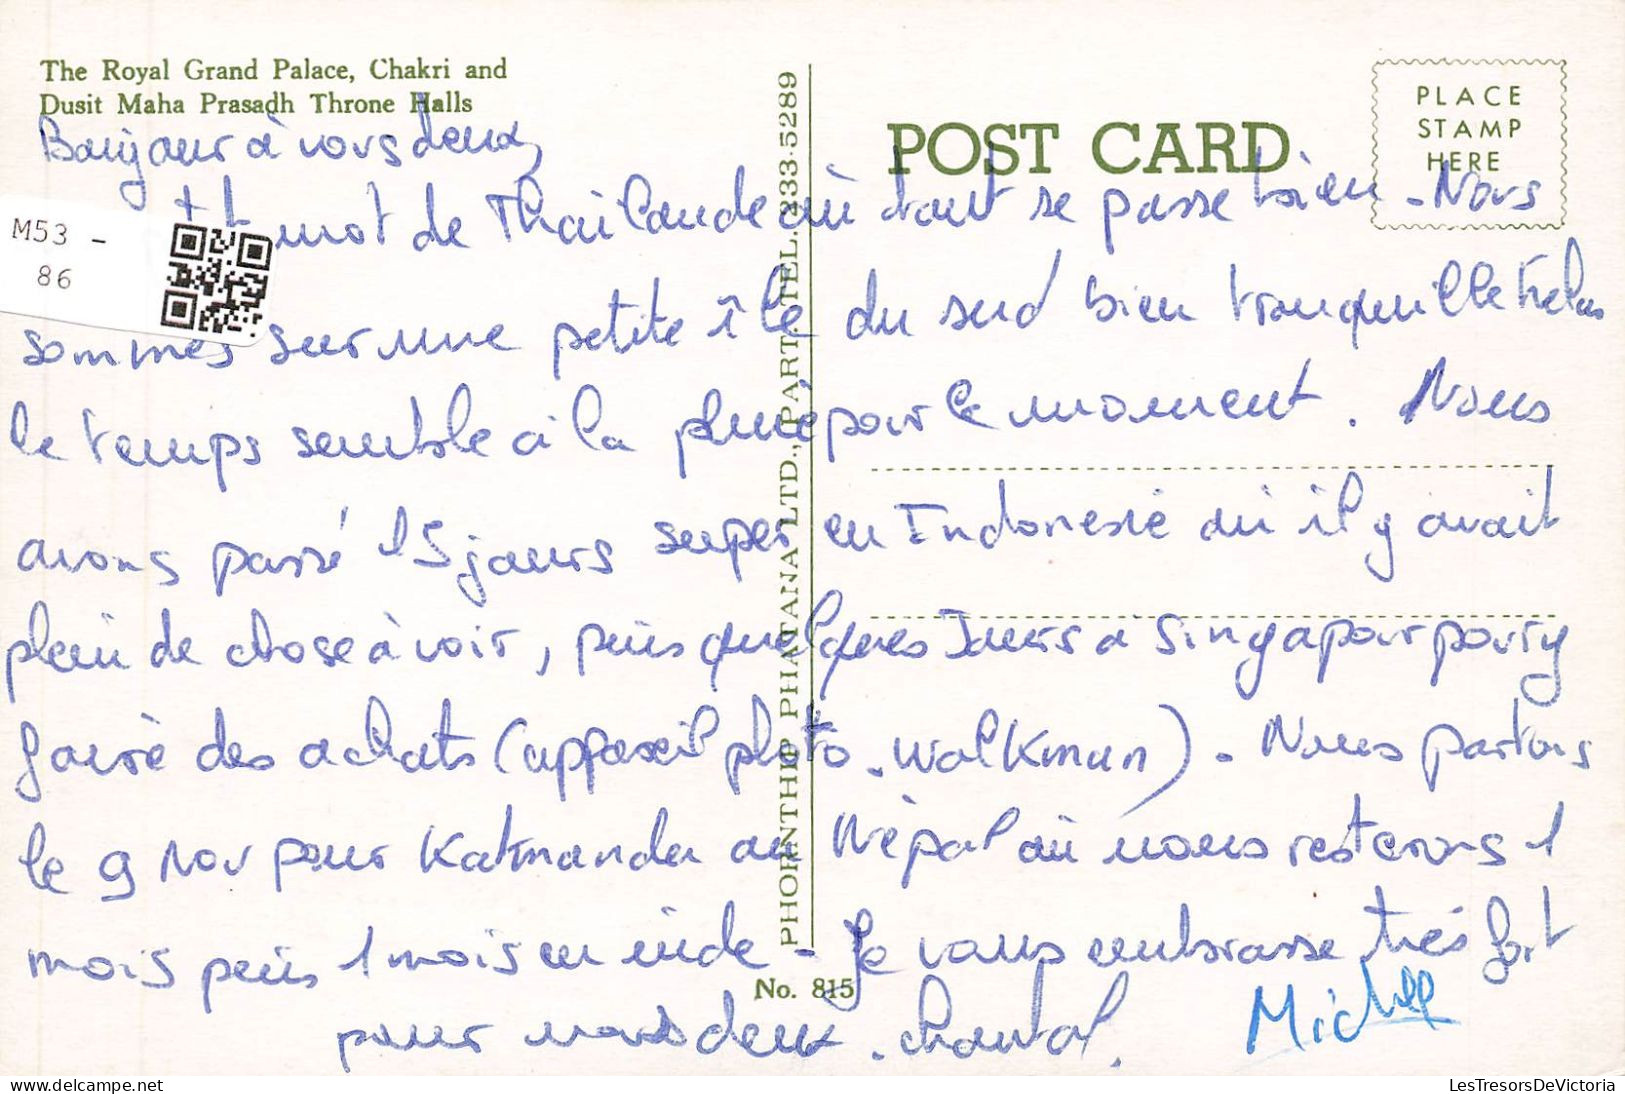 The Royal Grand Palace, Chakri and
Dusit Maha Prasadh Throne Halls
POST CARD
PLACE
STAMP
HERE
M53 -
86
PHORNTHIP PHATANA LTD., PART. TEL. 233-5289
Bonjour à vous deux,
mot de Thaïlande où tout se passe bien - Nous
sommes sur une petite île du sud bien tranquille hélas
le temps semble à la pluie pour le moment. Nous
avons passé 15 jours super en Indonésie où il y avait
plein de chose à voir, puis quelques Jours à Singapour pour y
faire des achats (appareil photo - walkman) - Nous partons
le 9 Nov pour Katmandu au Népal où nous resterons 1
mois puis 1 mois en inde - Je vous embrasse très fort
pour nous deux - Chantal.
Michel
No. 815
LesTresorsDeVictoria